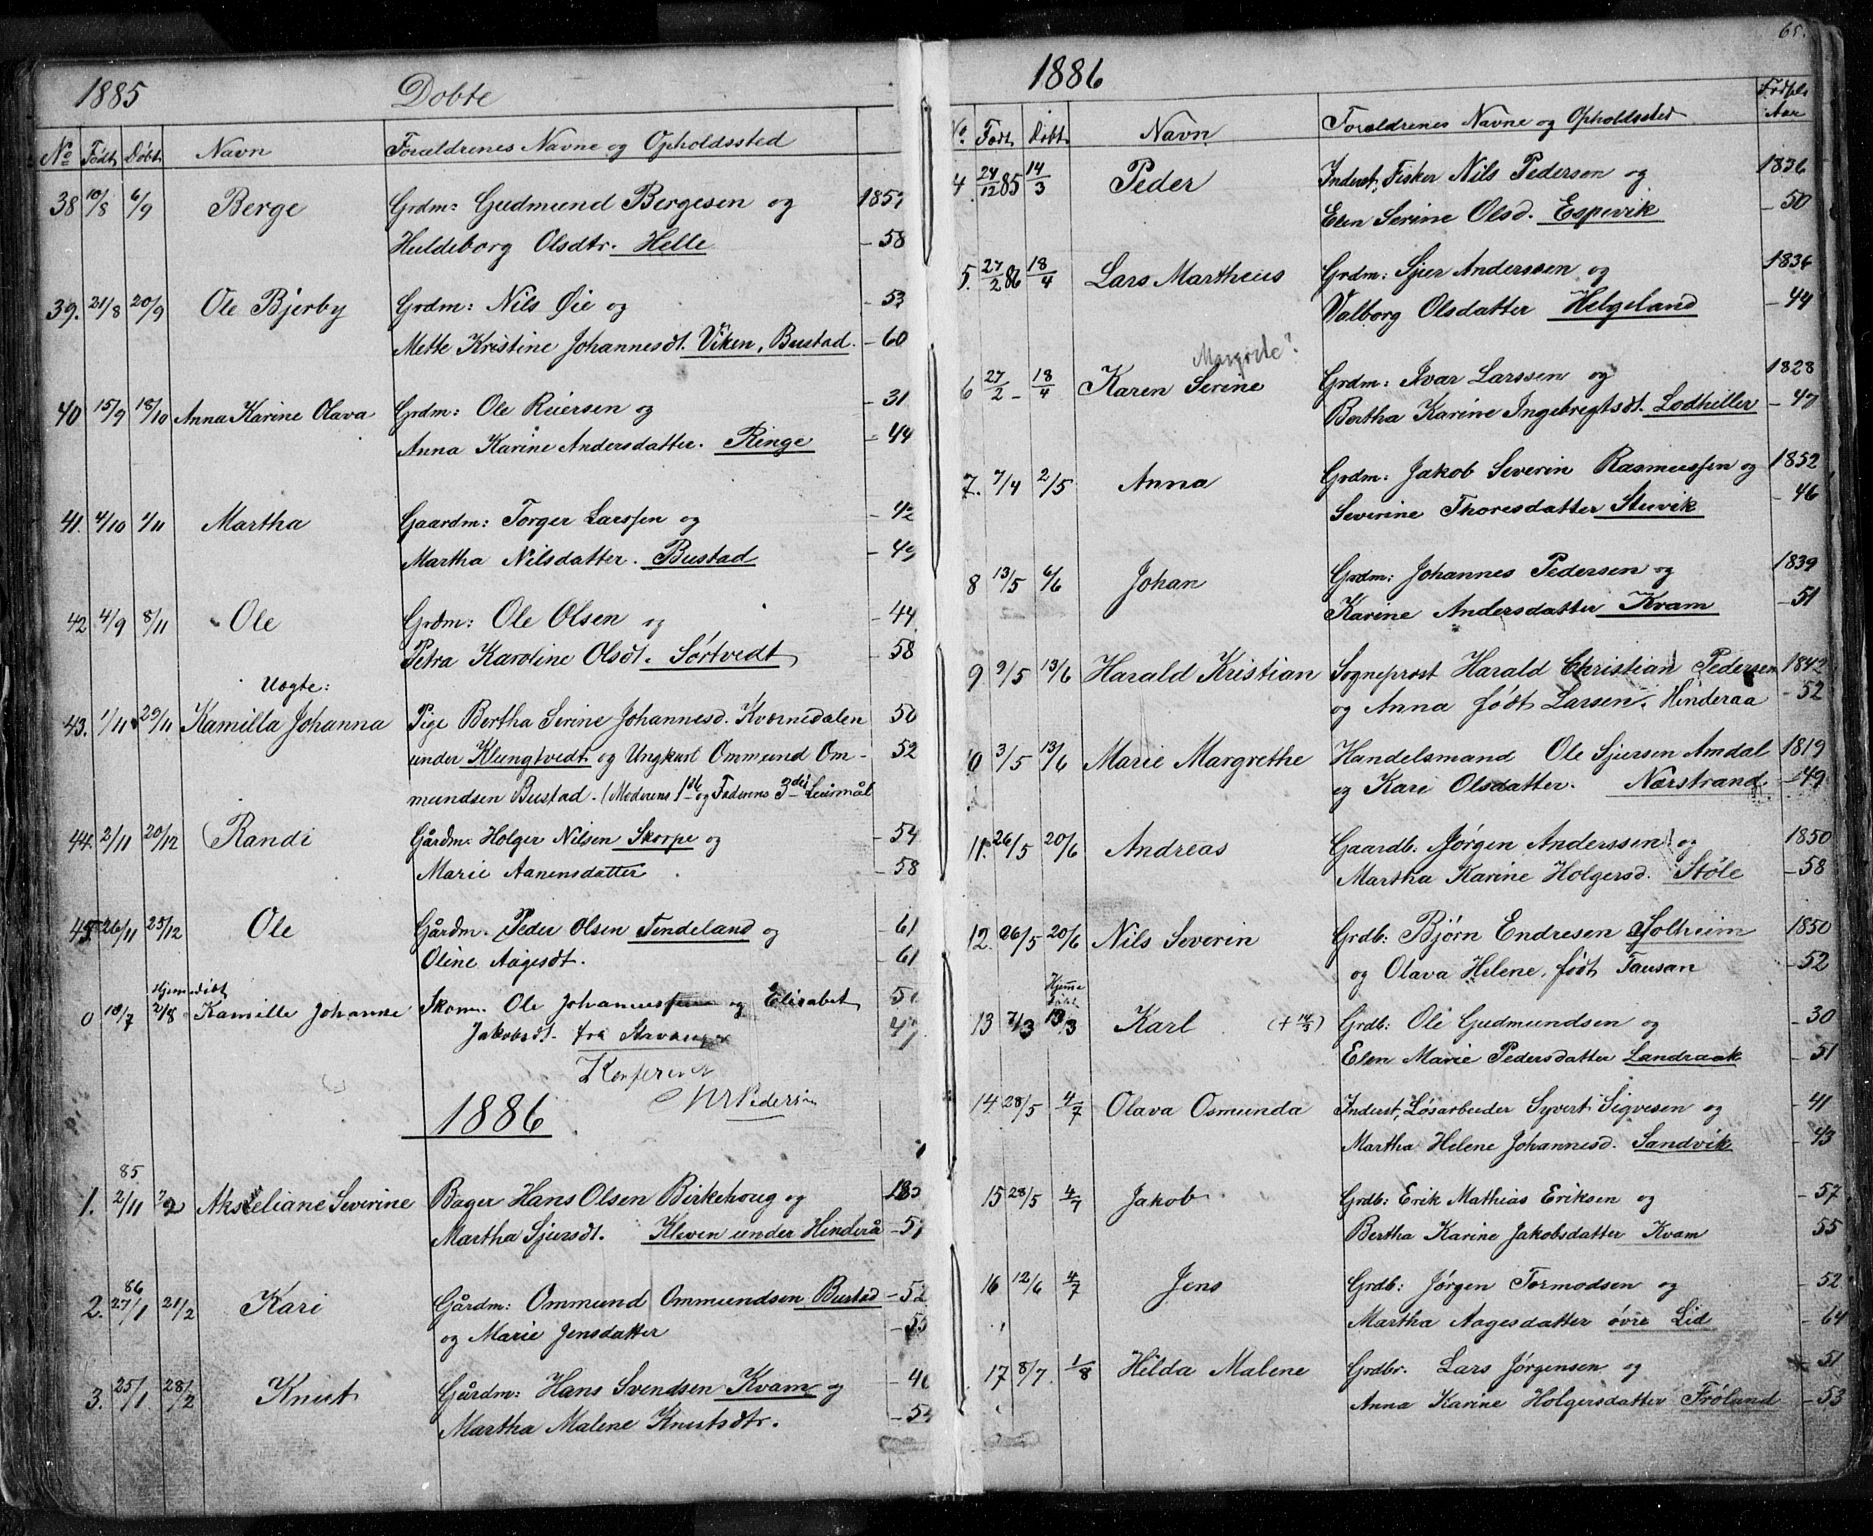 1885 Døbte
No Født Døbt Navn Forældrenes Navne og Opholdssted
38 10/8 6/9 Berge Grdm: Gudmund Bergesen og 1857
Huldeborg Olsdtr. Helle - 58
39. 21/8 20/9 Ole Bjerby Grdm: Nils Øie og - 53
Mette Kristine Johannesdt. Viken, Bustad. - 60
40 15/9 18/10 Anna Karine Olava Grdm: Ole Reiersen og - 31
Anna Karine Andersdatter. Ringe - 44
41. 4/10 1/11 Martha Gaardm: Torger Larssen og - 42
Martha Nilsdatter. Bustad - 49
42 4/9 8/11 Ole Grdm: Ole Olsen og - 44
Petra Karoline Olsdt. Sørtvedt - 58
Uægte:
43. 1/11 29/11 Kamilla Johanna Pige Bertha Serine Johannesd. Kværnedalen 50
under Klungtvedt og Ungkarl Ommund Om- 52
mundsen Bustad. (Moderens 1ste og Faderens 3die Leiermål
44. 2/11 20/12 Randi Gårdm: Holger Nilsen Skorpe og - 54
Marie Aanensdatter - 58
45 26/11 25/12 Ole Gårdm. Peder Olsen Tindeland og - 61
Oline Aagesdt. - 61
Hjemmedøbt
0 18/7 2/8 Kamille Johanne Skom. Ole Johannessen og Elisabet 51
Jakobsdt. fra Stavanger
Konfereret
Pedersen
1886
85
1. 2/11 7/2 Akseliane Severine Bager Hans Olsen Birkehoug og
Martha Sjursdt. Kleven under Hinderå - 57
86
2. 27/1 21/2 Kari Gårdm: Ommund Ommundsen Bustad - 52
og Marie Jensdatter - 55
3. 25/1 28/2 Knut Gårdm: Hans Svendsen Kvam og
Martha Malene Knutsdtr. - 54
65.
1886
No Født Døbt Navn Forældrenes Navne og Opholdssted Fødsels Aar
4 27/12 85 14/3 Peder Inderst, Fisker Nils Pedersen og 1836
Elen Serine Olsd. Espevik - 50
5. 27/2 86 18/4 Lars Martheus Grdm: Sjur Anderssen og 1836
Valborg Olsdatter Helgeland - 44
Margrete?
6 27/2 - 18/4 Karen Serine Grdm: Ivar Larssen og 1828
Bertha Karine Ingebrigtsdt. Lodhiller - 47
7. 7/4 2/5 Anna Grdm: Jakob Severin Rasmussen og 1852
Severine Thoresdatter Stuvik - 46
8 13/5 6/6 Johan Grdm: Johannes Pedersen og 1839
Karine Andersdatter Kvam - 51
9 9/5 13/6 Harald Kristian Sogneprest Harald Christian Pedersen 1842
og Anna født Larsen. Hinderaa - 52
0 3/5 13/6 Marie Margrethe Handelsmand Ole Sjursen Amdal 1819
og Kari Olsdatter. Nærstrand. - 49
11. 26/5 20/6 Andreas Gaardb: Jørgen Anderssen og 1850
Martha Karine Holgersd. Støle - 58
12. 26/5 20/6 Nils Severin Grdb: Bjørn Endresen Solheim 1850
og Olava Helene, født Tausan - 52
Hjemme døbt
13 7/3 13/3 Karl (+ 14/3) Grdb: Ole Gudmundsen og - 30
Elen Marie Pedersdatter Landraak - 51
14 28/5 4/7 Olava Osmunda Inderst, Løsarbeider Syvert Sigvesen og - 41
Martha Helene Johannesd. Sandvik - 43
15 28/5 4/7 Jakob Grdb: Erik Mathias Eriksen og - 57
Bertha Karine Jakobsdatter Kvam 55
16 12/6 4/7 Jens Grdb: Jørgen Tormodsen og - 52
Martha Aagesdatter øvre Lid - 64
17 8/7 1/8 Hilda Malene Grdbr. Lars Jørgensen og - 51
Anna Karine Holgersdatter Frøland - 53